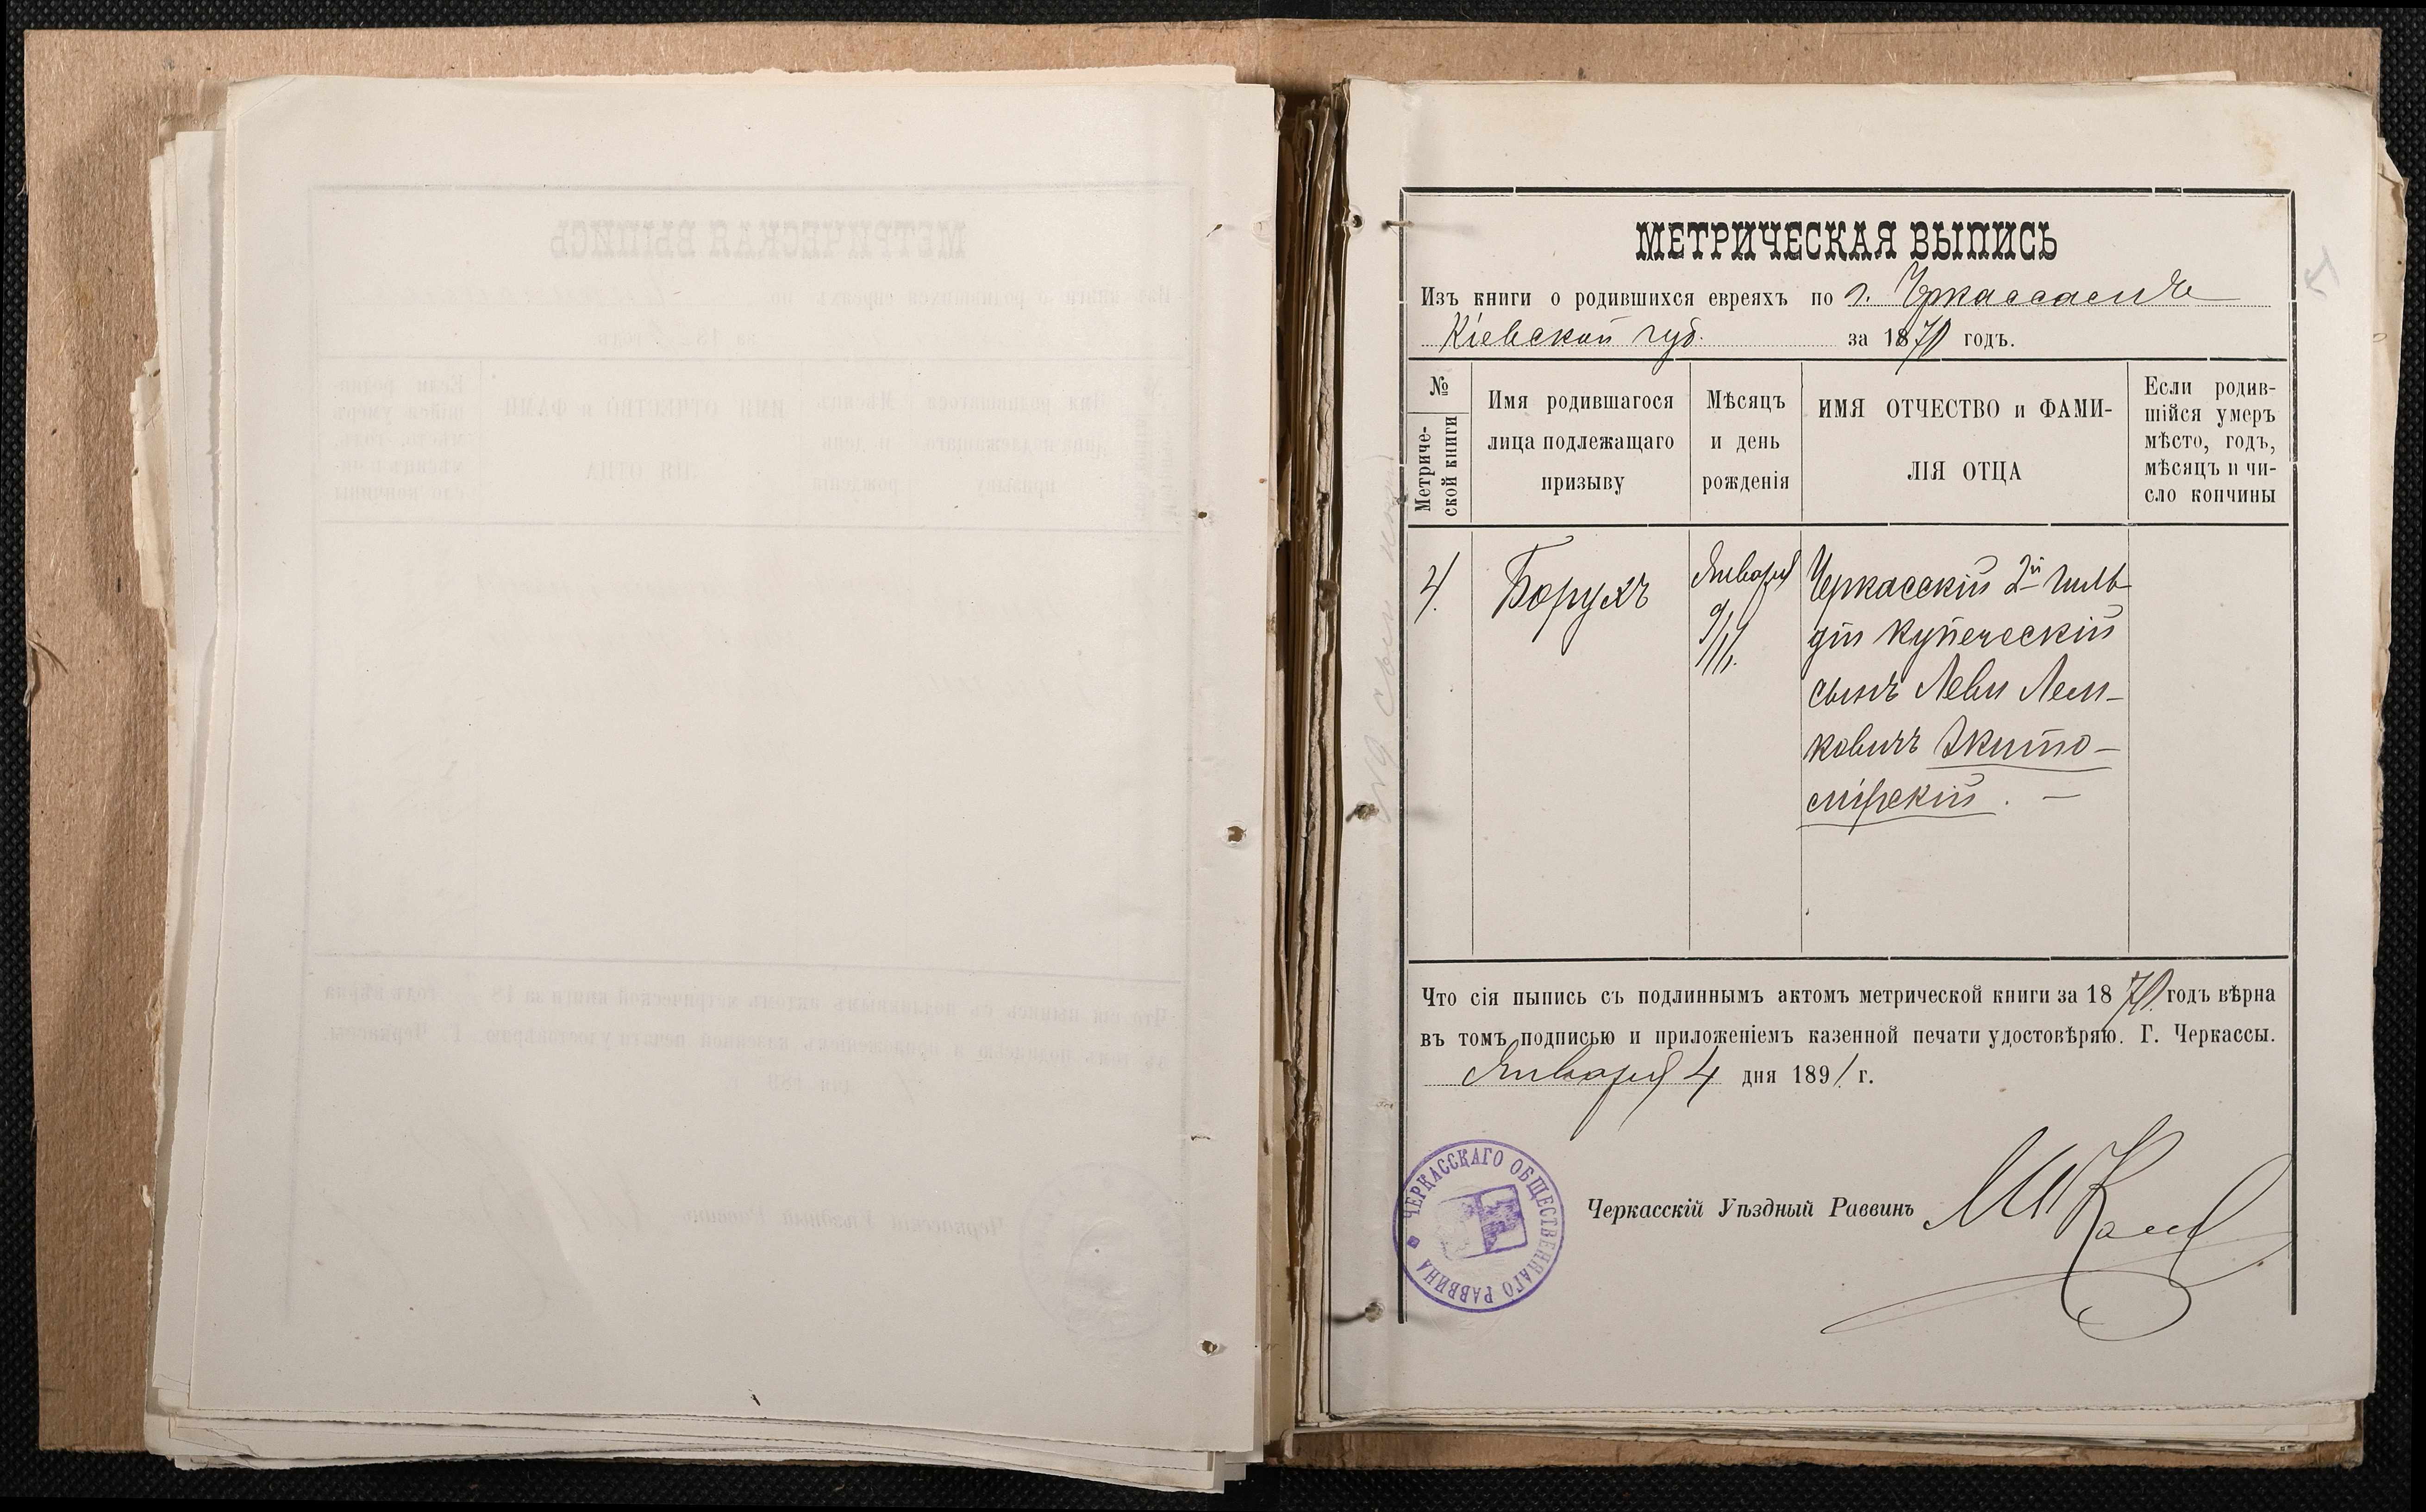 МЕТРИЧЕСКАЯ ВЫПИСЬ
Изъ книги о родившихся евреяхъ по г. Черкассамъ
Кіевской губ. за 1870 годъ.
№
Метриче-
ской книги
Имя родившагося
лица подлежащаго
призыву
Мѣсяцъ
и день
рожденія
ИМЯ ОТЧЕСТВО и ФАМИ-
ЛІЯ ОТЦА
Если родив-
шійся умеръ
мѣсто, годъ,
мѣсяцъ и чи-
сло кончины
4.
Борухъ
Января
9/11.
Черкасскій 2й гиль-
діи купеческій
сынъ Леви Лем-
ковичъ Жито-
мірскій. —
Что сія выпись съ подлиннымъ актомъ метрической книги за 1870 годъ вѣрна
въ томъ подписью и приложеніемъ казенной печати удостовѣряю. Г. Черкассы.
Января 4 дня 1891 г.
ЧЕРКАССКАГО ОБЩЕСТВЕННАГО РАВВИНА
Черкасскій Уѣздный Раввинъ